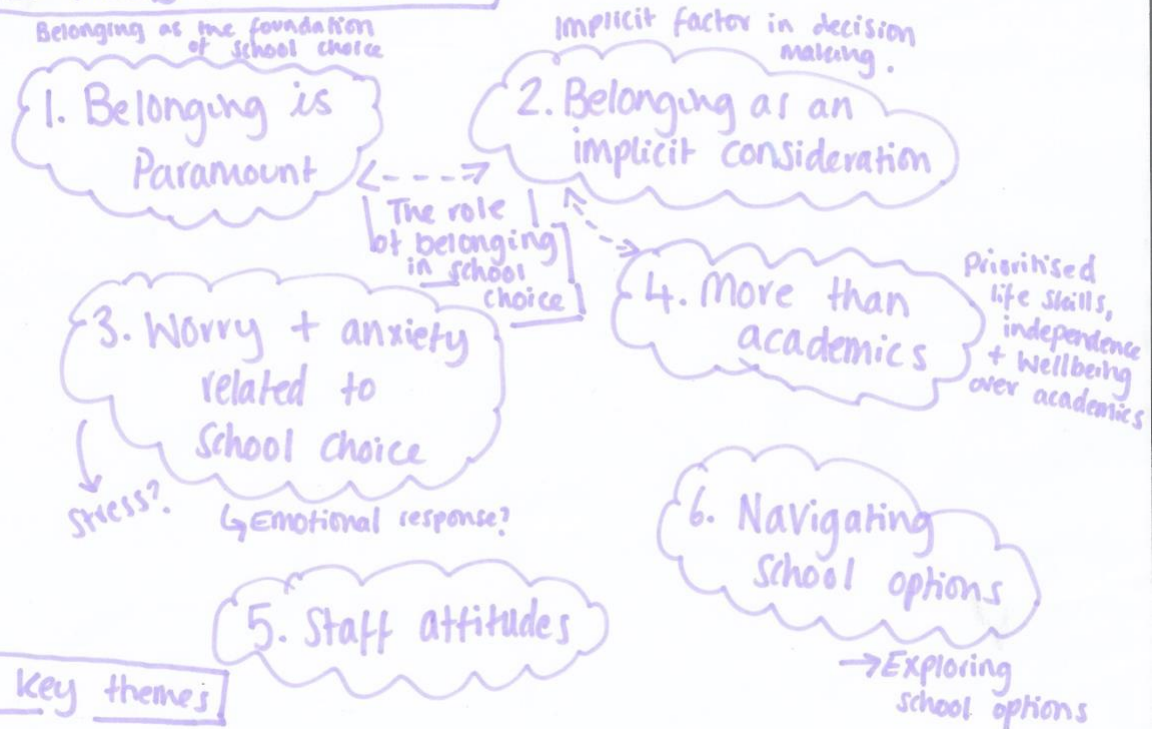 Belonging as the foundation
of school choice
1. Belonging is
Paramount
Implicit factor in decision
making.
2. Belonging as an
implicit consideration
The role
of belonging
in school
choice
3. Worry + anxiety
related to
school choice
stress?
↳ Emotional response?
4. More than
academics
Prioritised
life skills,
independence
+ wellbeing
over academics
5. Staff attitudes
6. Navigating
school options
→ Exploring
school options
Key themes